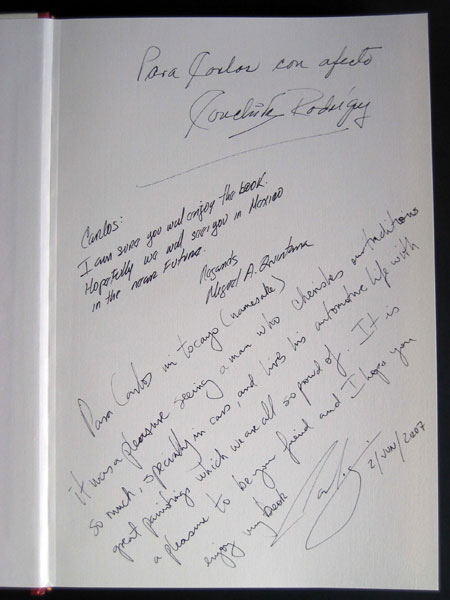 Para Carlos con afecto
Conchita Rodríguez
Carlos:
I am sure you will enjoy the book.
Hopefully we will see you in Mexico
in the near future.
Regards
Miguel A.
Para Carlos mi tocayo (namesake)
it was a pleasure seeing a man who cherishes our traditions
so much, specially in cars, and lives his automotive life with
great paintings which we are all so proud of. It is
a pleasure to be your friend and I hope you
enjoy my book
2/VIII/2007